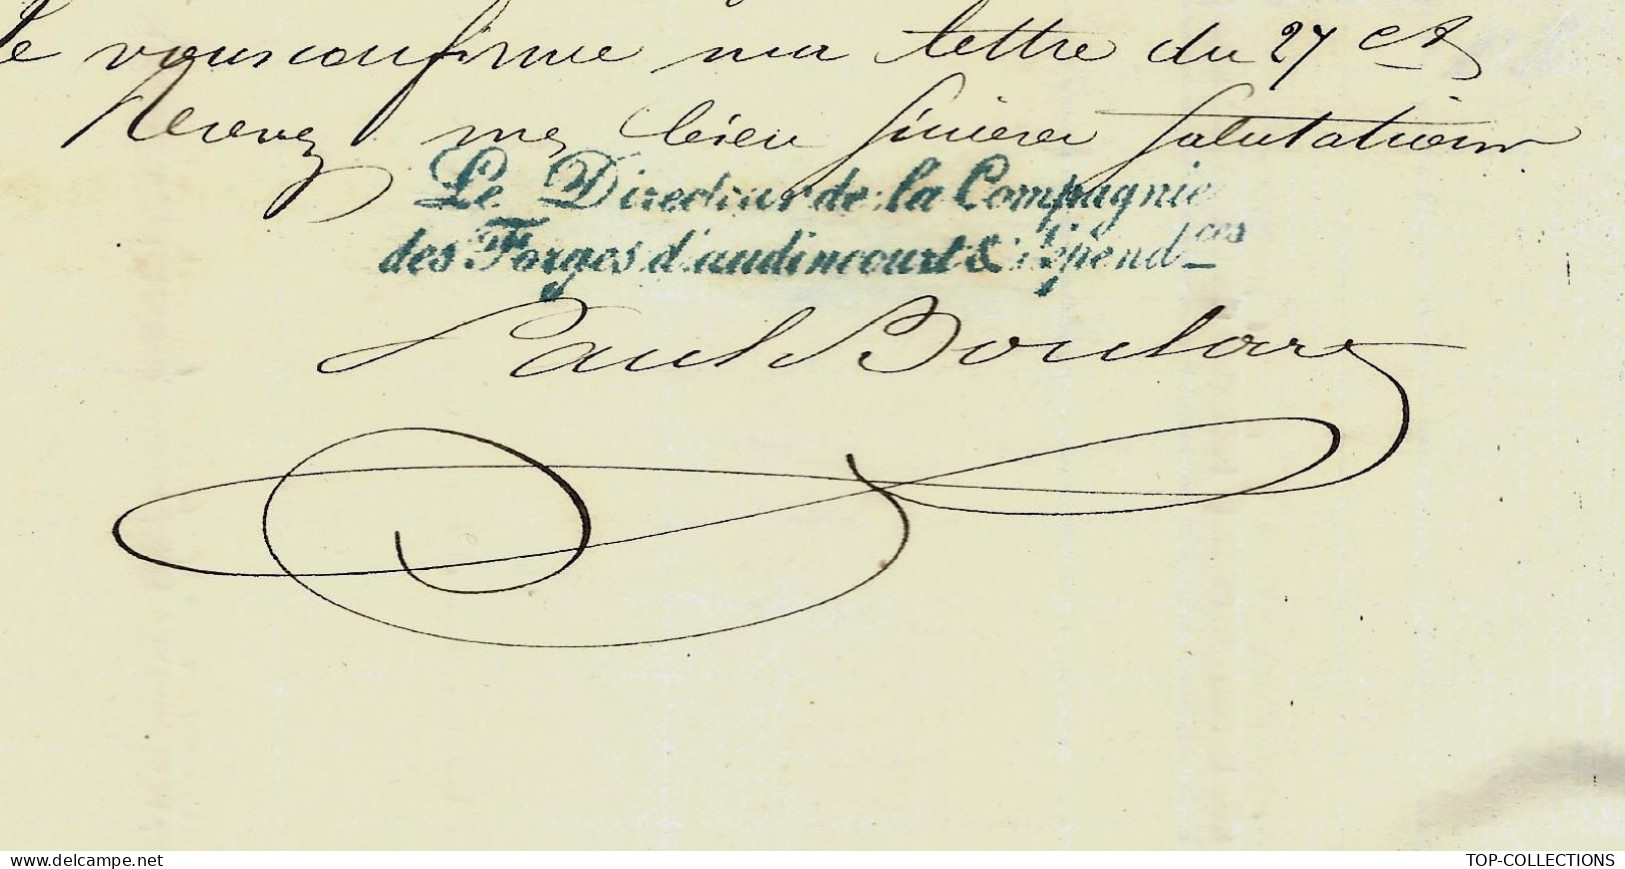 Je vous confirme ma lettre du 27 ct
Recevez mes bien sincères salutations
Le Directeur de la Compagnie
des Forges d'audincourt & dépend.ces
Paul Boulard
delcampe.net
TOP-COLLECTIONS